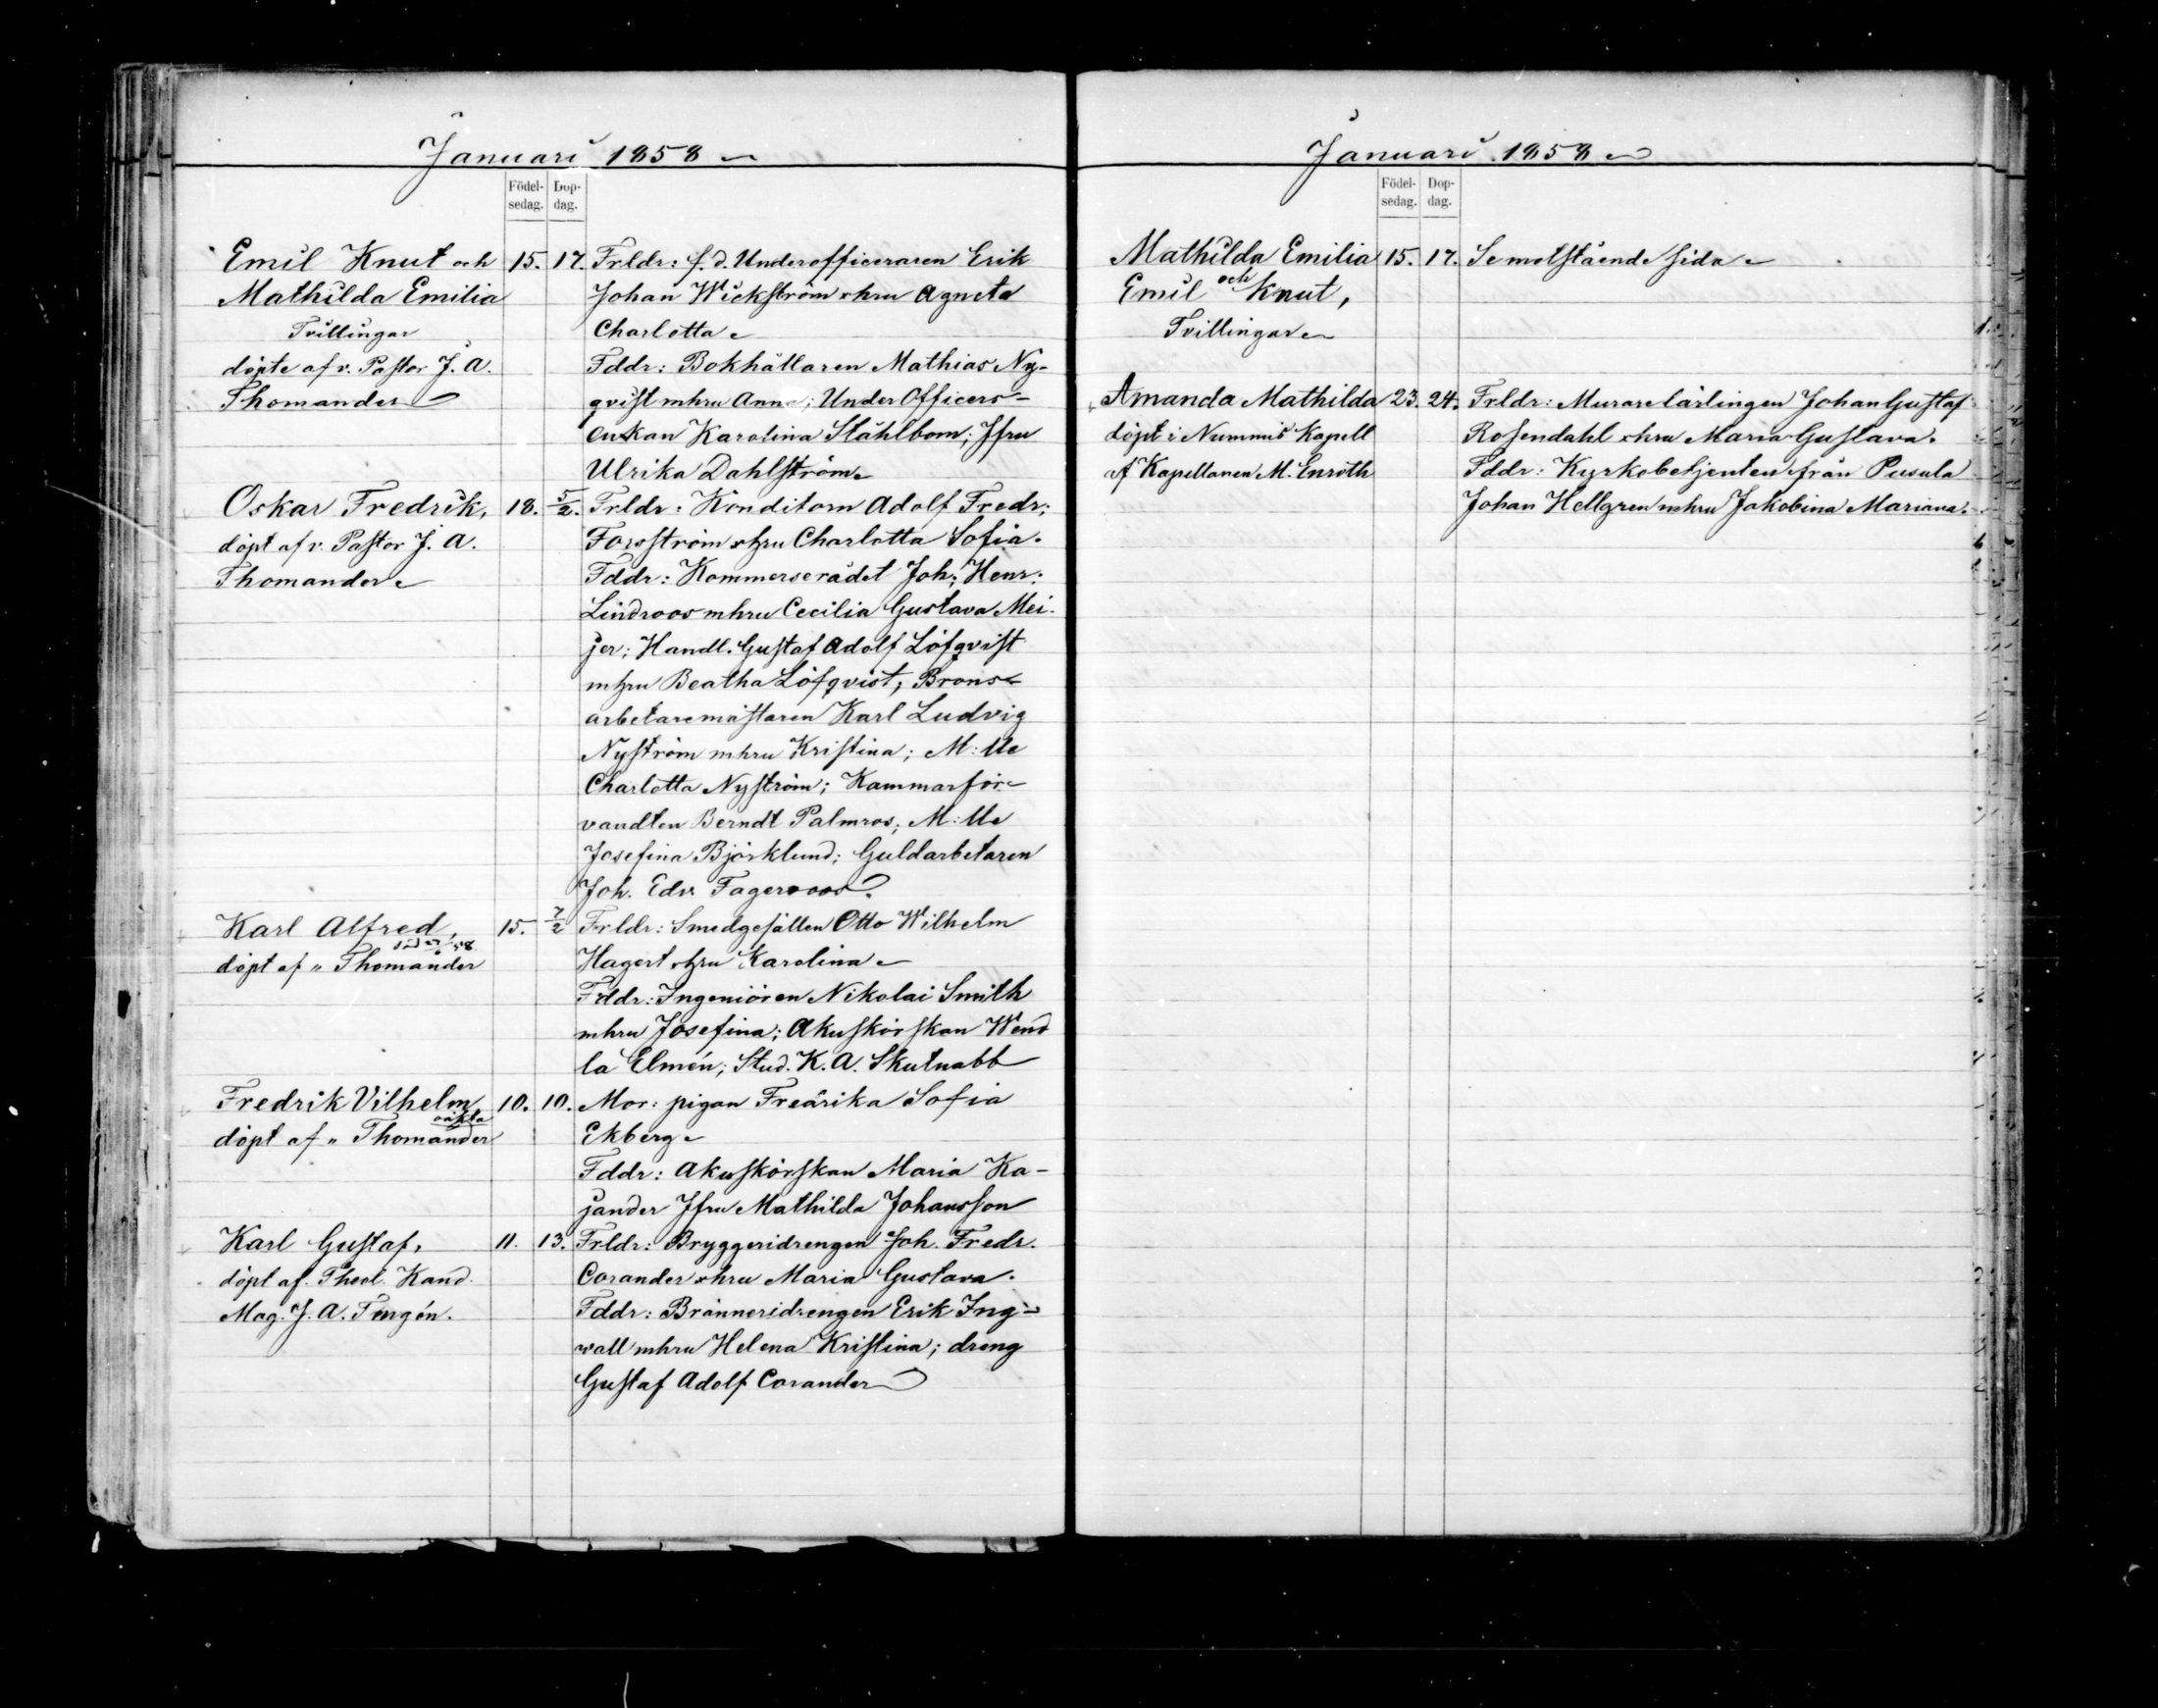 Januari 1858
Födel-
sedag.
Dop-
dag.
Emil Knut och 15. 17. Frldr: f. d. Underofficeraren Erik
Mathilda Emilia Johan Wickström o hru Agneta
Tvillingar Charlotta
döpte af v. Pastor J. A. Fddr: Bokhållaren Mathias Ny-
Thomander qvist m hru Anna; Under Officers-
enkan Karolina Ståhlbom; Jfru
Ulrika Dahlström
Oskar Fredrik, 18. 5/2. Frldr: Konditorn Adolf Fredr:
döpt af v. Pastor J. A. Forsström o hru Charlotta Sofia.
Thomander Fddr: Kommerserådet Joh: Henr:
Lindroos m hru Cecilia Gustava Mei-
jer; Handl. Gustaf Adolf Löfqvist
m hru Beatha Löfqvist, Brons
arbetaremästaren Karl Ludvig
Nyström m hru Kristina; M:lle
Charlotta Nyström; Kammarför-
vandten Berndt Palmros; M:lle
Josefina Björklund; Guldarbetaren
Joh. Edv. Fagerroos
Karl Alfred, 15. 7/2 Frldr: Smedgesällen Otto Wilhelm
döpt af " Thomander Hagert o hru Karolina
Fddr: Ingeniören Nikolai Smith
m hru Josefina; Akuskörskan Wend
la Elmén; Stud. K. A. Skutnabb
Fredrik Vilhelm 10. 10. Mor: pigan Fredrika Sofia
oäkta
döpt af " Thomander Ekberg
Fddr: Akuskörskan Maria Ka-
jander Jfru Mathilda Johansson
Karl Gustaf, 11. 13. Frldr: Bryggeridrengen Joh. Fredr.
döpt af Theol. Kand. Corander o hru Maria Gustava.
Mag. J. A. Tengén. Fddr: Bränneridrengen Erik Ing-
wall m hru Helena Kristina; dreng
Gustaf Adolf Corander
Januari 1858
Födel-
sedag.
Dop-
dag.
Mathilda Emilia 15. 17. Se motstående sida
Emil och Knut,
Tvillingar
Amanda Mathilda 23. 24. Frldr: Murarelärlingen Johan Gustaf
döpt i Nummis Kapell Rosendahl o hru Maria Gustava.
af Kapellanen M. Enroth Fddr: Kyrkobetjenten från Pusula
Johan Hellgren m hru Jakobina Mariana.